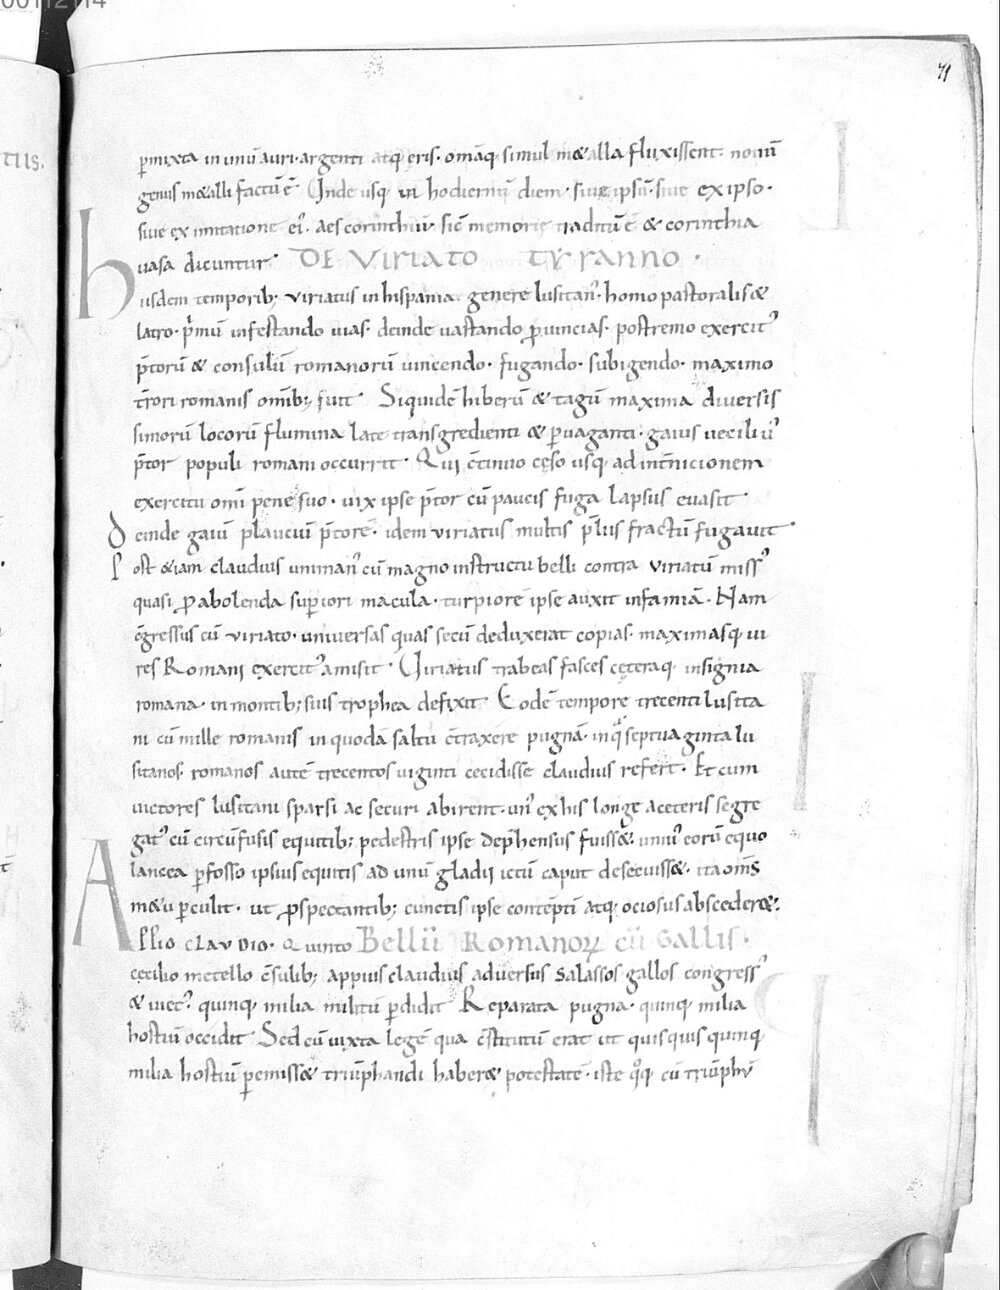 00112114
71
TIIS.
p̄mixta in unū auri. argenti atq; eris. omāq; simul m&alla fluxissent. nouū
genus m&alli factū ē. Unde usq; in hodiernū diem. siue ipsū. siue ex ipso.
siue ex imitatione ei'. aes corinthiū. sic̄ memorie traditū ē & corinthia
uasa dicuntur. DE Viriato TYranno.
husdem temporib; viriatus in hispania. genere lusitan'. homo pastoralis &
latro. p̄mū infestando uias. deinde uastando p̱uincias. postremo exercit'
p̄torū & consulū romanorū uincendo. fugando. subigendo. maximo
t̄rori romanis omīb; fuit. Siquidē hiberū & tagū maxima diuersis
simorū locorū flumina late transgredienti & p̱uaganti. gaius uecili u'
p̄tor populi romani occurrit. Qui c̄tinuo cęso usq; ad int̄nicionem
exercitu omī pene suo. uix ipse p̄tor cū paucis fuga lapsus euasit.
deinde gaiū plauciū p̄torē. idem viriatus multis p̄liis fractū fugauit.
Post &iam claudius uniman' cū magno instructu belli contra viriatū miss'
quasi p̱ abolenda sup̱iori macula. turpiorē ipse auxit infamiā. Nam
c̄gressus cū viriato. uniuersas quas secū deduxerat copias. maximasq; ui
res Romani exercit' amisit. Uiriatus trabeas fasces cęteraq; insignia
romana. in montib; suis trophea defixit. Eodē tempore trecenti lusita
ni cū mille romanis in quodā saltu c̄traxere pugnā. in q' septuaginta lu
sitanos. romanos autē trecentos uiginti cecidisse claudius refert. Et cum
uictores lusitani sparsi ac securi abirent. un' ex his longe aceteris segre
gat' cū circūfusis equitib; pedestris ipse dep̱hensus fuiss&. uni' eorū equo
lancea p̱fosso ipsius equitis ad unū gladii ictū caput desecuiss&. ita om̄s
m&u p̱culit. ut p̱spectantib; cunctis ipse contēpti atq; ociosus absceder&.
APPio CLAVDIO. Quinto Bellū Romanorꝝ cū Gallis.
cecilio metello c̄sulib; appius claudius aduersus salassos gallos congress'
& uict'. quinq; milia militū p̱didit. Reparata pugna. quinq; milia
hostiū occidit. Sed cū iuxta legē qua c̄stitutū erat ut quisquis quinq;
milia hostiū p̱emiss& triūphandi haber& potestatē. iste q°q; cū triūphū